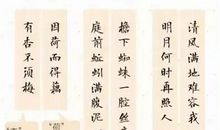 清風滿地難容我
明月何时再照人
檐下蜘蛛一腔丝
庭前蚯蚓滿腹泥
因荷而得藕
有杏不須梅